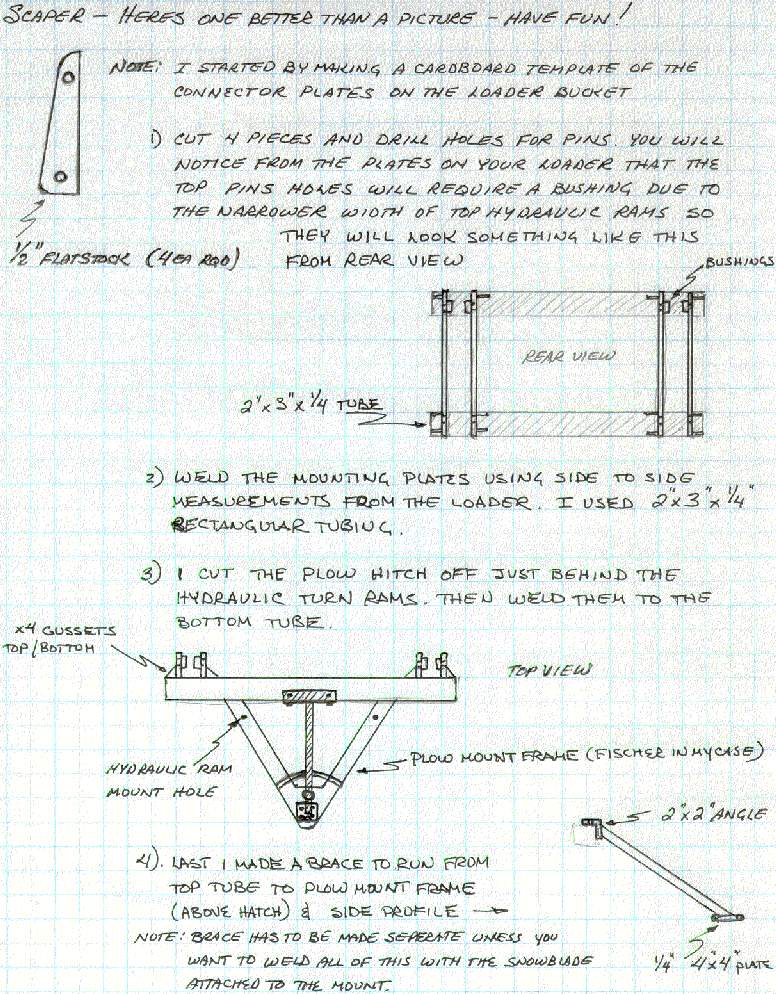 SCAPER – HERES ONE BETTER THAN A PICTURE – HAVE FUN!
NOTE: I STARTED BY MAKING A CARDBOARD TEMPLATE OF THE
CONNECTOR PLATES ON THE LOADER BUCKET
1) CUT 4 PIECES AND DRILL HOLES FOR PINS. YOU WILL
NOTICE FROM THE PLATES ON YOUR LOADER THAT THE
TOP PINS HOLES WILL REQUIRE A BUSHING DUE TO
THE NARROWER WIDTH OF TOP HYDRAULIC RAMS SO
THEY WILL LOOK SOMETHING LIKE THIS
FROM REAR VIEW
1/2" FLATSTOCK (4EA RQD)
BUSHINGS
REAR VIEW
2"x3"x1/4 TUBE
2) WELD THE MOUNTING PLATES USING SIDE TO SIDE
MEASUREMENTS FROM THE LOADER. I USED 2"x3"x1/4"
RECTANGULAR TUBING.
3) I CUT THE PLOW HITCH OFF JUST BEHIND THE
HYDRAULIC TURN RAMS. THEN WELD THEM TO THE
BOTTOM TUBE.
x4 GUSSETS
TOP/BOTTOM
TOP VIEW
HYDRAULIC RAM
MOUNT HOLE
PLOW MOUNT FRAME (FISCHER IN MY CASE)
2"x2" ANGLE
4). LAST I MADE A BRACE TO RUN FROM
TOP TUBE TO PLOW MOUNT FRAME
(ABOVE HATCH) & SIDE PROFILE →
NOTE: BRACE HAS TO BE MADE SEPERATE UNLESS YOU
WANT TO WELD ALL OF THIS WITH THE SNOWBLADE
ATTACHED TO THE MOUNT.
1/4" 4"x4" PLATE